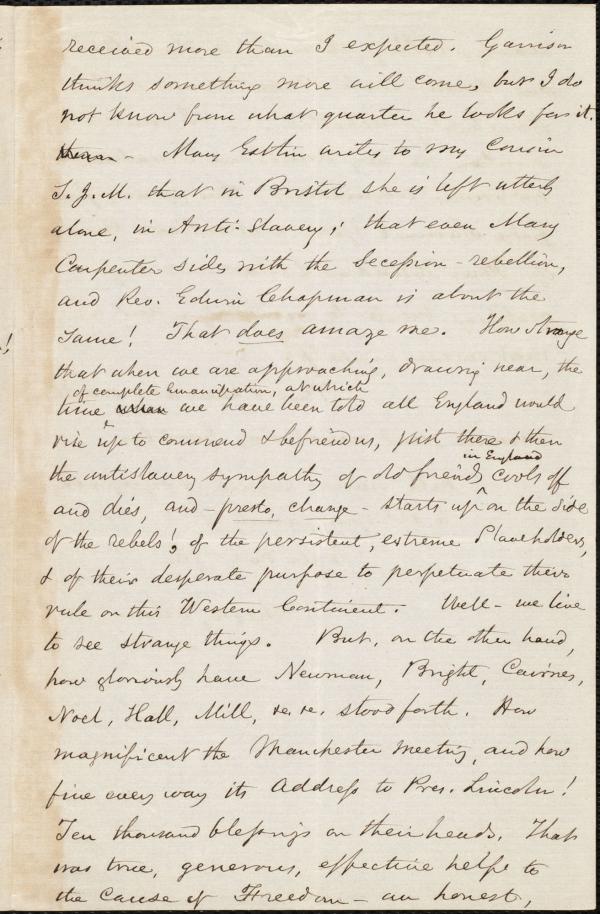 received more than I expected. Garrison
thinks something more will come, but I do
not know from what quarter he looks for it.
- Mary Estlin writes to my Cousin
S. J. M. that in Bristol she is left utterly
alone, in Anti-Slavery; that even Mary
Carpenter sides with the Secession-rebellion,
and Rev. Edwin Chapman is about the
same! That does amaze me. How strange
that when we are approaching, drawing near, the
of complete Emancipation, at which
time when we have been told all England would
rise up to commend & befriend us, just there & then
in England
the antislavery sympathy of old friends cools off
and dies, and - presto, change - starts up on the side
of the rebels!, of the persistent, extreme Slaveholders,
& of their desperate purpose to perpetuate their
rule on this Western Continent. Well - we live
to see strange things. But, on the other hand,
how gloriously have Newman, Bright, Cairnes,
Noel, Hall, Mill, &c. &c. stood forth. How
magnificent the Manchester meeting, and how
fine every way its Address to Pres. Lincoln!
Ten thousand blessings on their heads. That
was true, generous, effective help to
the Cause of Freedom - an honest,